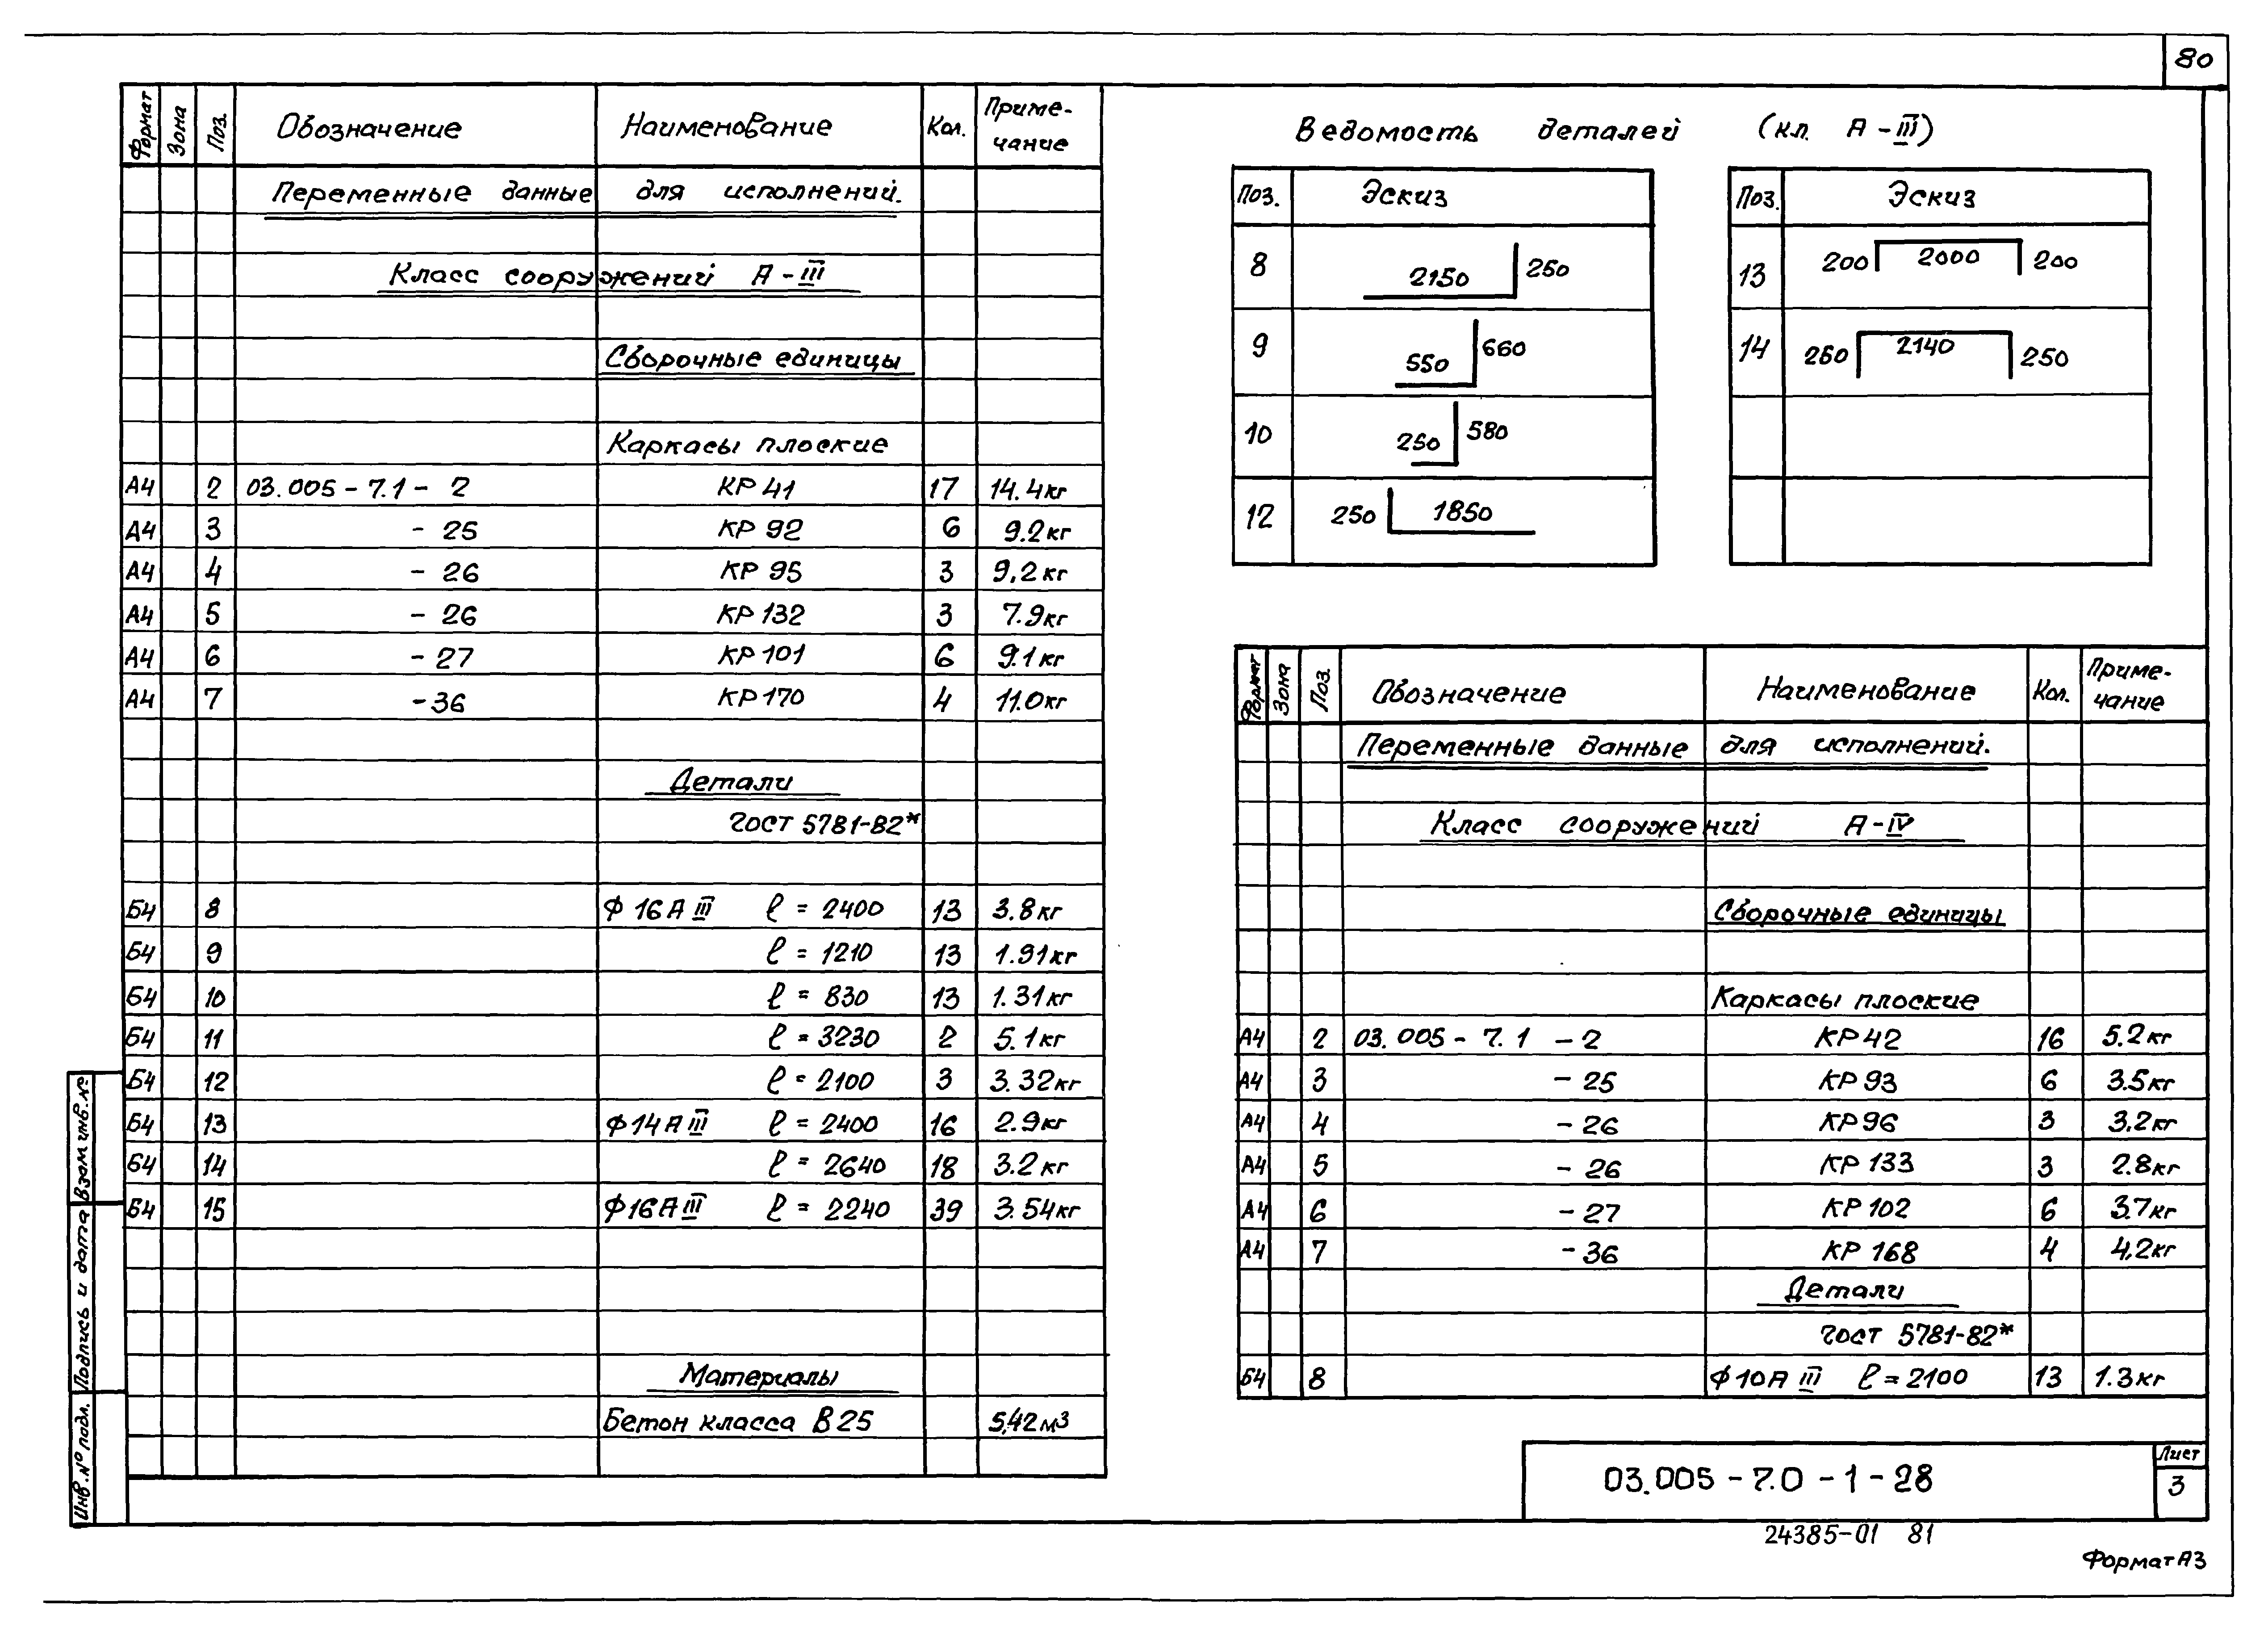 80
Формат Зона Поз. Обозначение Наименование Кол. Приме-
чание
Переменные данные для исполнений.
Класс сооружений А-III
Сборочные единицы
Каркасы плоские
А4 2 03.005-7.1- 2 КР 41 17 14.4кг
А4 3 - 25 КР 92 6 9.2кг
А4 4 - 26 КР 95 3 9,2кг
А4 5 - 26 КР 132 3 7.9кг
А4 6 - 27 КР 101 6 9.1кг
А4 7 - 36 КР 170 4 11.0кг
Детали
ГОСТ 5781-82*
Б4 8 Ф 16 А III ℓ = 2400 13 3.8кг
Б4 9 ℓ = 1210 13 1.91кг
Б4 10 ℓ = 830 13 1.31кг
Б4 11 ℓ = 3230 2 5.1кг
Б4 12 ℓ = 2100 3 3.32кг
Б4 13 Ф 14 А III ℓ = 2400 16 2.9кг
Б4 14 ℓ = 2640 18 3.2кг
Б4 15 Ф 16 А III ℓ = 2240 39 3.54кг
Материалы
Бетон класса В 25 5,42м3
Ведомость деталей (кл. А-III)
Поз. Эскиз
8 2150 250
9 550 660
10 250 580
12 250 1850
Поз. Эскиз
13 200 2000 200
14 250 2140 250
Формат Зона Поз. Обозначение Наименование Кол. Приме-
чание
Переменные данные для исполнений.
Класс сооружений А-IV
Сборочные единицы
Каркасы плоские
А4 2 03.005-7.1 - 2 КР 42 16 5.2кг
А4 3 - 25 КР 93 6 3.5кг
А4 4 - 26 КР 96 3 3.2кг
А4 5 - 26 КР 133 3 2.8кг
А4 6 - 27 КР 102 6 3.7кг
А4 7 - 36 КР 168 4 4.2кг
Детали
ГОСТ 5781-82*
Б4 8 Ф 10 А III ℓ = 2100 13 1.3кг
Инв. № подл. Подпись и дата Взам инв. №
03.005-7.0-1-28
Лист
3
24385-01 81
Формат А3